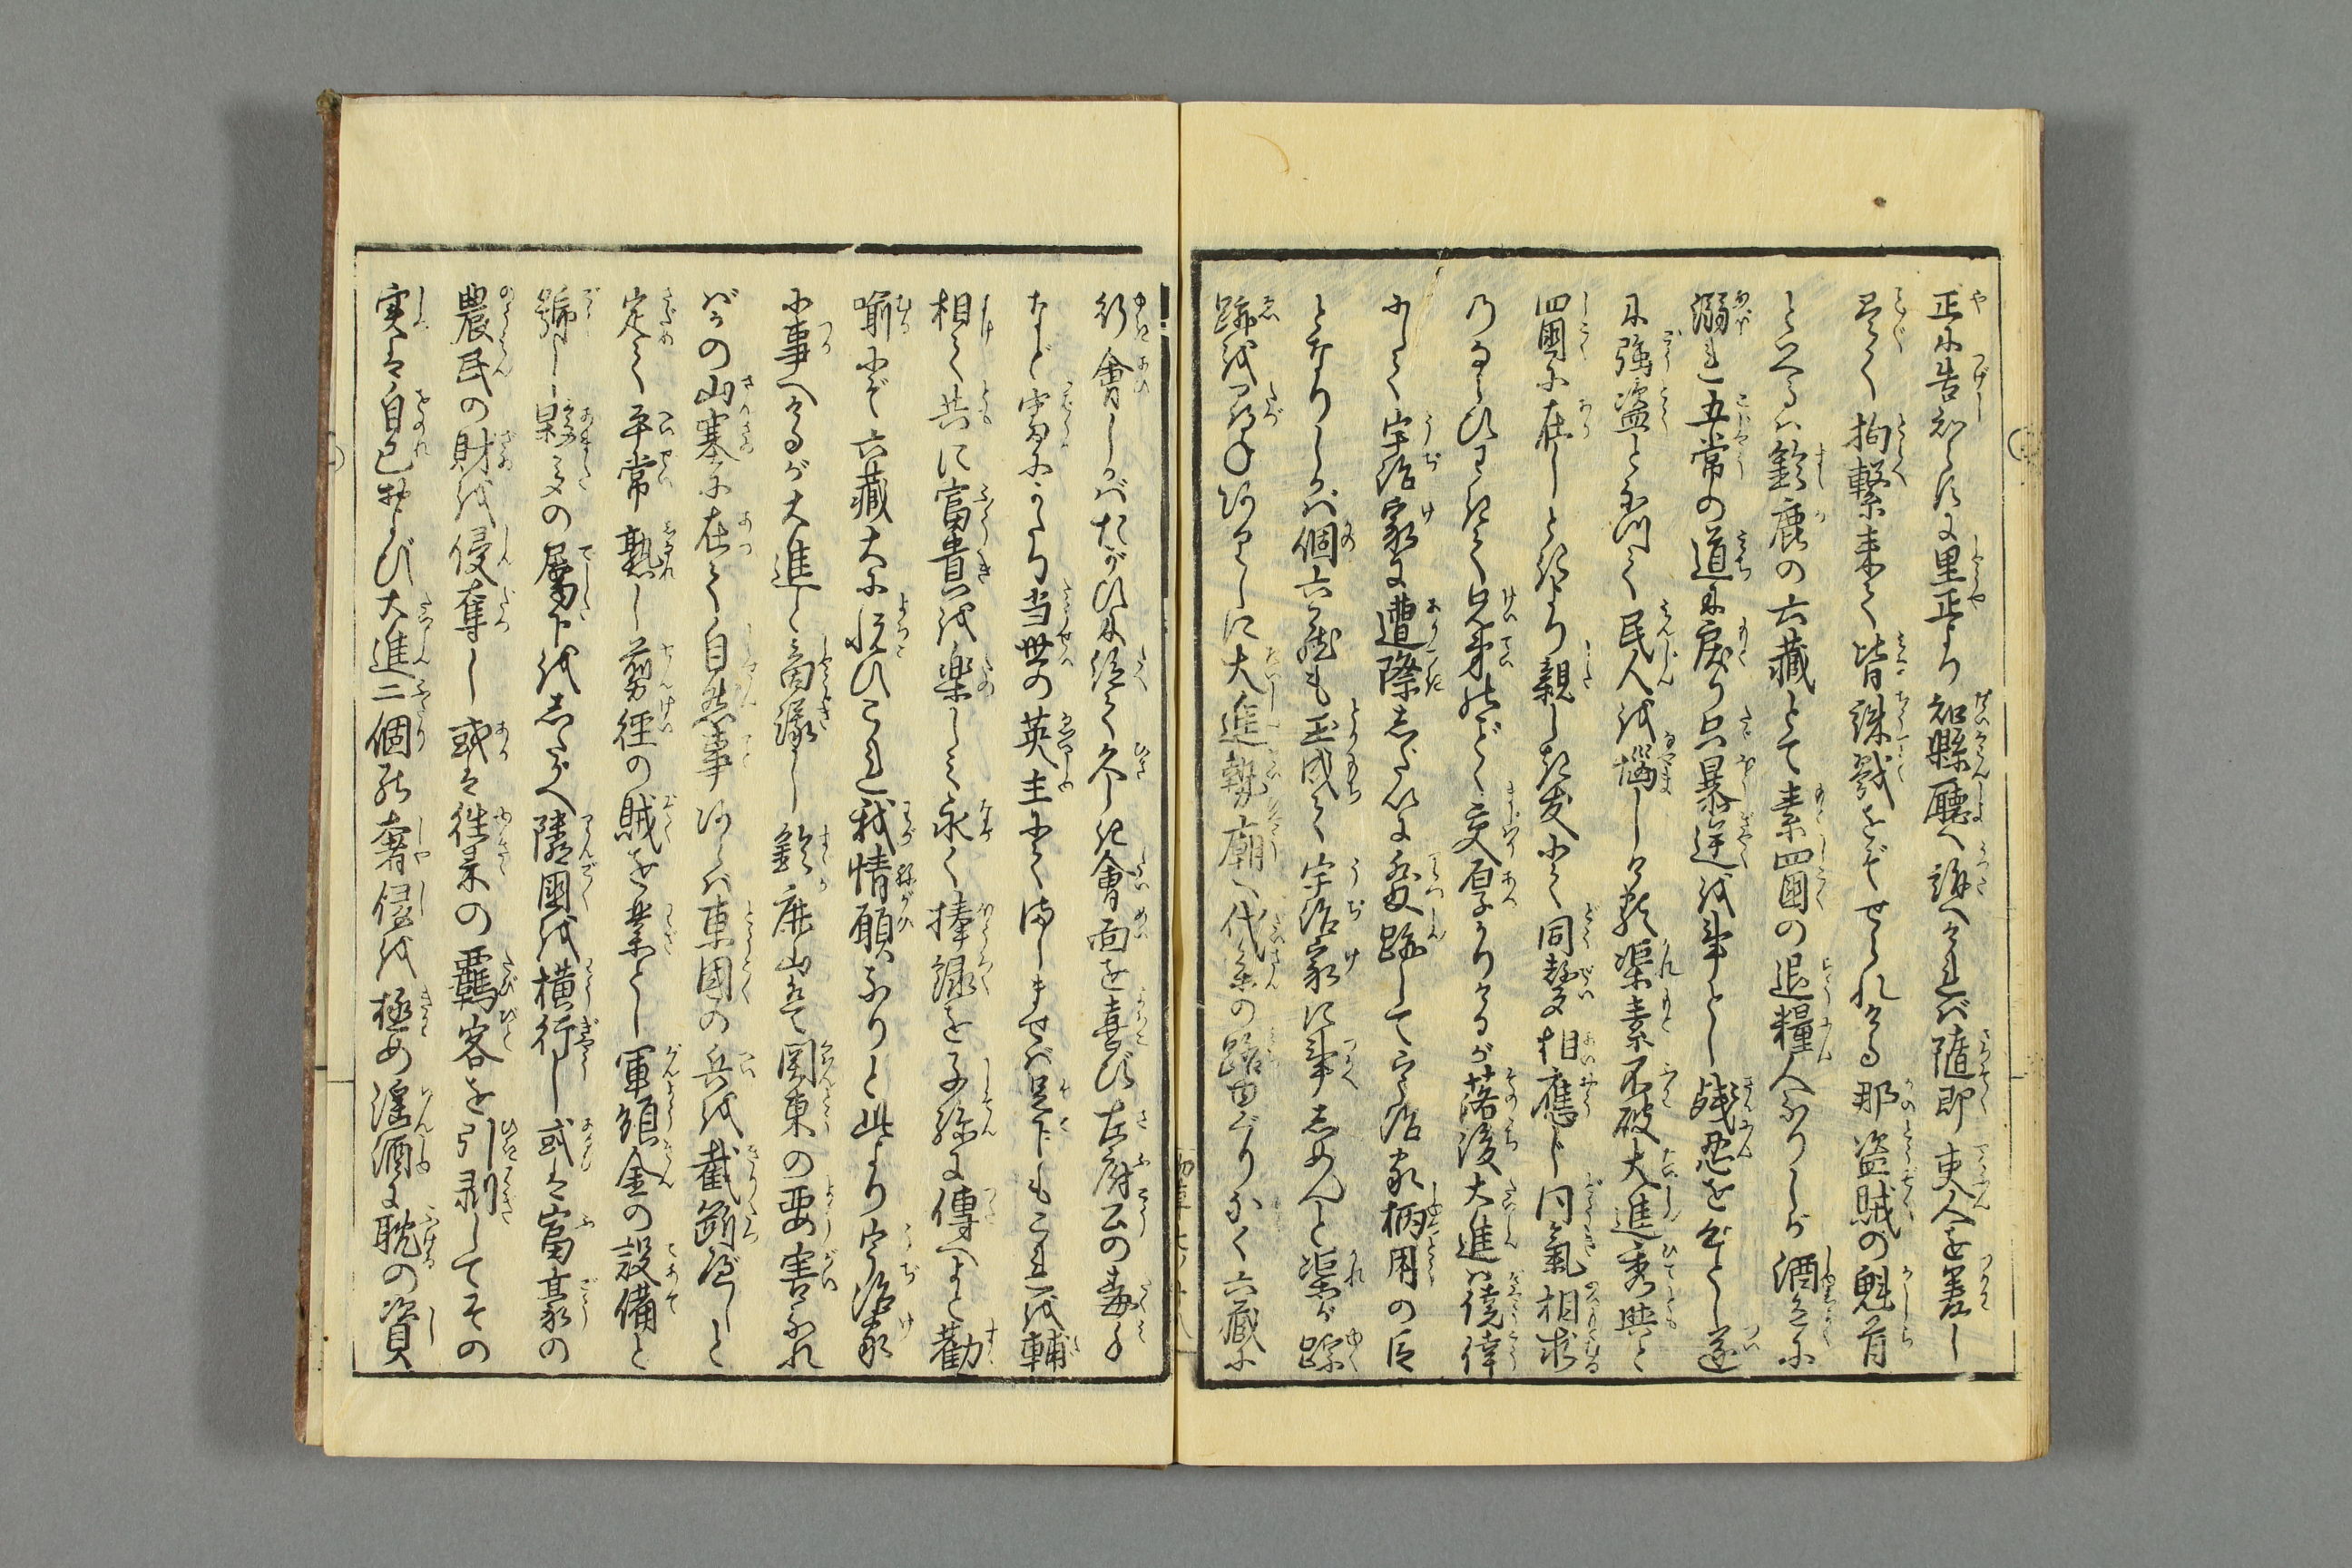 正に告知らするに里正より知縣廳へ訴へければ隨即吏人を差し
尽く拘繋来て皆誅戮をぞせられける那盗賊の魁首
といへるハ鈴鹿の六藏とて素四国の退糧人なりしが酒色に
溺れ五常の道に戻り只暴逆を事とし残忍を心とし遂
に強盗となりて民人を悩しける渠素不破大進秀興と
四國に在しときより親しき友にて同聲相應じ同氣相求
のならひにて兄弟のごとく交厚かりけるが落後大進ハ僥倖
にして宇治家に遭際しだいに発跡して宇治家柄用の臣
となりしかバ個六藏も玉成て宇治家に事しめんと渠が踪
跡をたづね居りしに大進勢廟へ代参の路由ぐりなく六藏に
行會しかバたがひに絶て久しき會面を喜び左府公の毒手
など審にかたり当世の英主にてましませば足下もこれを輔
相て共に富貴を楽しミ永く捧禄を子孫に傳へよと勸
喩にぞ六藏大に悦びこれ我情願なりと此より宇治家
に事へけるが大進と商議し鈴鹿山ハ関東の要害なれ
ばかの山塞に在て自然事あらバ東国の兵を截斷べしと
定て平常熟し剪徑の賊を業とし軍須金の設備と
號し夥多の属下をしたがへ隣國を横行し或ハ富豪の
農民の財を侵奪し或ハ往来の覊客を引剥してその
実ハ自己および大進二個の奢侈を極め淫酒に耽の資